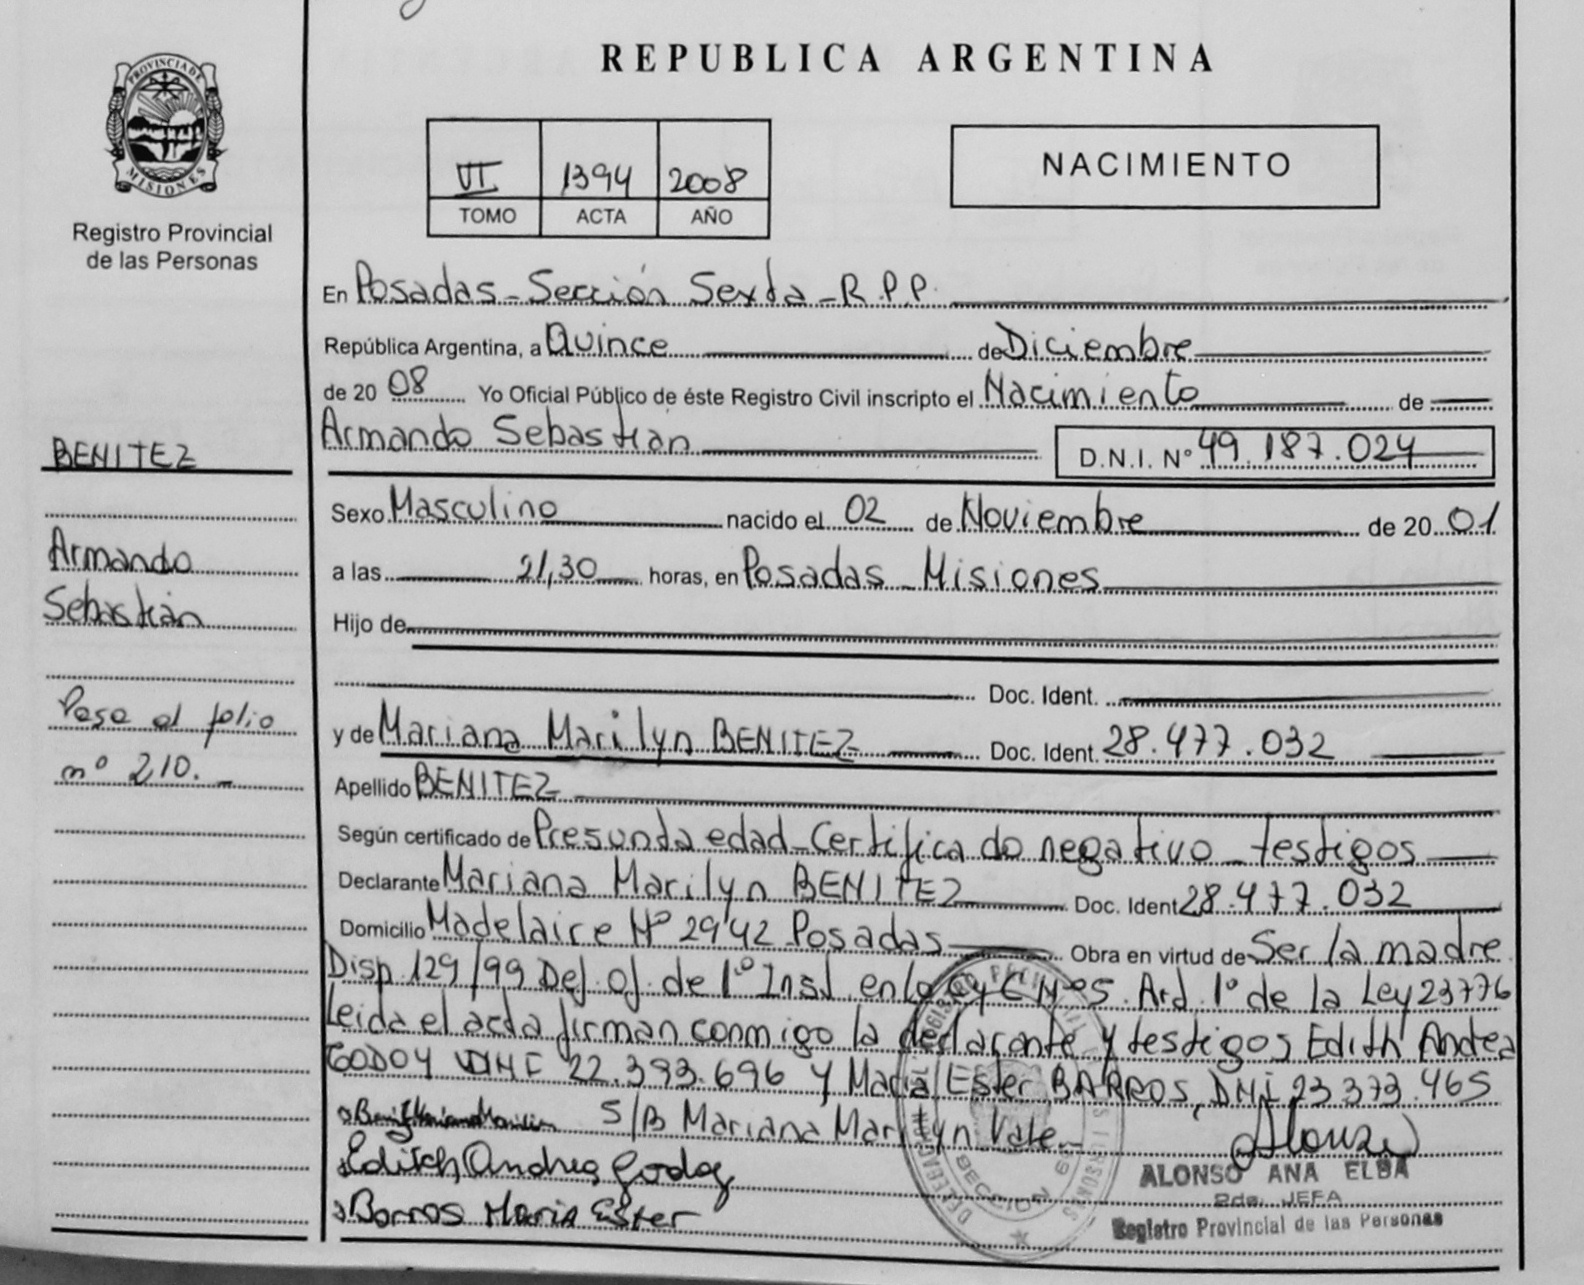 REPUBLICA ARGENTINA
PROVINCIA DE
MISIONES
Registro Provincial
de las Personas
VI 1394 2008
TOMO ACTA AÑO
NACIMIENTO
En Posadas - Sección Sexta - R.P.P.
República Argentina, a Quince de Diciembre
de 20 08 Yo Oficial Público de éste Registro Civil inscripto el Nacimiento de
Armando Sebastián D.N.I. Nº 49.187.024
BENITEZ
Armando
Sebastián
Pasa al folio
nº 210.-
Sexo Masculino nacido el 02 de Noviembre de 20 01
a las 21,30 horas, en Posadas - Misiones
Hijo de
Doc. Ident.
y de Mariana Marilyn BENITEZ Doc. Ident. 28.477.032
Apellido BENITEZ
Según certificado de Presunta edad - Certificado negativo - testigos
Declarante Mariana Marilyn BENITEZ Doc. Ident 28.477.032
Domicilio Madelaire Nº 2942 Posadas Obra en virtud de Ser la madre
Disp. 129/99 Def. Of. de 1º Inst. en lo C y C Nº 5. Art. 1º de la Ley 23776
Leida el acta firman conmigo la declarante y testigos Edith Andrea
GODOY 22.393.696 y María Ester BARROS, DNI 23.373.465
S/B Mariana Marilyn Vale
Edith Andrea Godoy
Barros Maria Ester
ALONSO ANA ELBA
2da. JEFA
Registro Provincial de las Personas